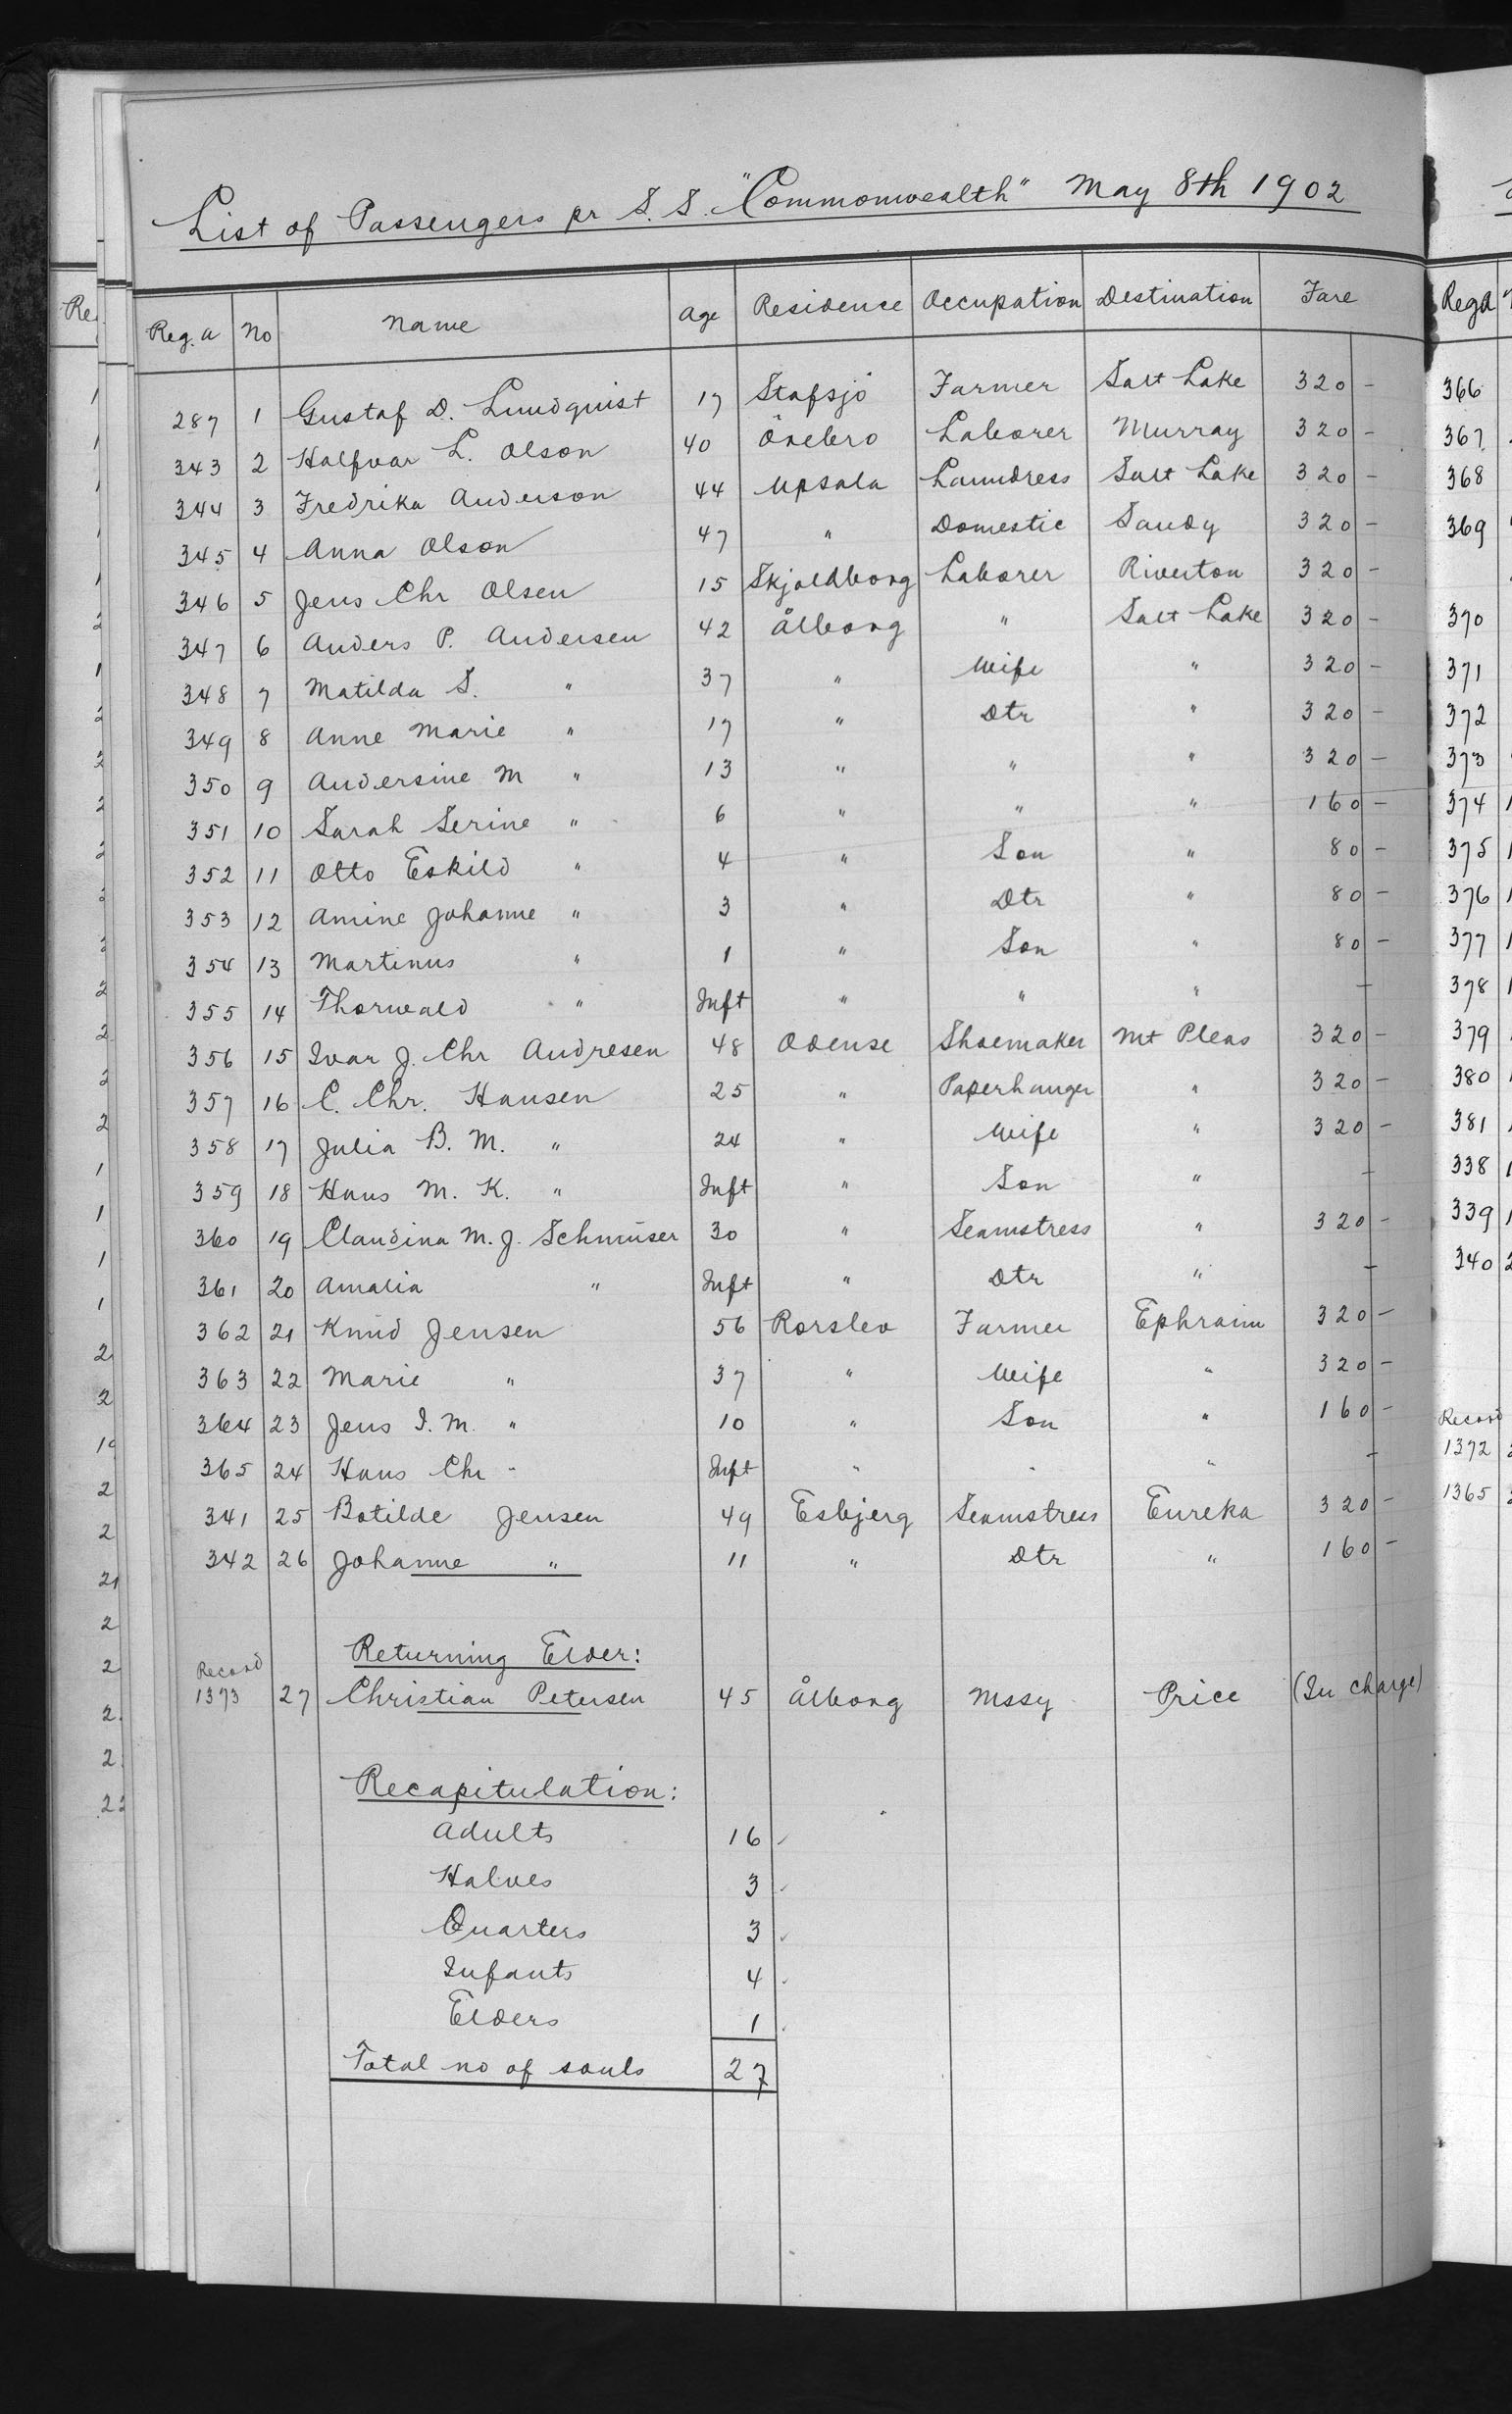 List of Passengers pr S.S. "Commonwealth" May 8th 1902
Reg.a No Name Age Residence Occupation Destination Fare
287 1 Gustaf D. Lundquist 17 Stafsjö Farmer Salt Lake 320 -
343 2 Halfvar L. Olson 40 Örebro Laborer Murray 320 -
344 3 Fredrika Anderson 44 Upsala Laundress Salt Lake 320 -
345 4 Anna Olson 47 " Domestic Sandy 320 -
346 5 Jens Chr Olsen 15 Skjoldborg Laborer Riverton 320 -
347 6 Anders P. Andersen 42 Ålborg " Salt Lake 320 -
348 7 Matilda S. " 37 " Wife " 320 -
349 8 Anne Marie " 17 " Dtr " 320 -
350 9 Andersine M " 13 " " " 320 -
351 10 Sarah Serine " 6 " " " 160 -
352 11 Otto Eskild " 4 " Son " 80 -
353 12 Amine Johanne " 3 " Dtr " 80 -
354 13 Martinus " 1 " Son " 80 -
355 14 Thorwald " Inft " " " -
356 15 Ivar J. Chr Andresen 48 Odense Shoemaker Mt Pleas 320 -
357 16 C. Chr. Hansen 25 " Paperhanger " 320 -
358 17 Julia B. M. " 24 " Wife " 320 -
359 18 Hans M. K. " Inft " Son " -
360 19 Claudina M. J. Schmüser 30 " Seamstress " 320 -
361 20 Amalia " Inft " Dtr " -
362 21 Knud Jensen 56 Rorslev Farmer Ephraim 320 -
363 22 Marie " 37 " Wife " 320 -
364 23 Jens I. M. " 10 " Son " 160 -
365 24 Hans Chr - Inft " " " -
341 25 Botilde Jensen 49 Esbjerg Seamstress Eureka 320 -
342 26 Johanne " 11 " Dtr " 160 -
Returning Elder:
Record
1373 27 Christian Petersen 45 Ålborg Mssy Price (In charge)
Recapitulation:
Adults 16
Halves 3
Quarters 3
Infants 4
Elders 1
Total no of souls 27
Regd
366
367
368
369
370
371
372
373
374
375
376
377
378
379
380
381
338
339
340
Record
1372
1365